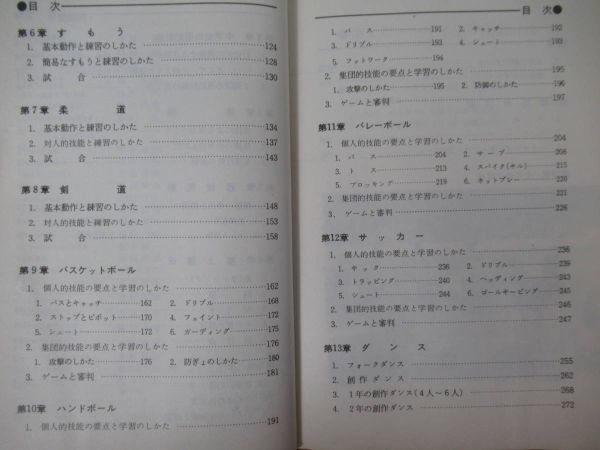 ●目　次
第6章　す　も　う
1. 基本動作と練習のしかた ……… 124
2. 簡易なすもうと練習のしかた ……… 128
3. 試　　合 ……… 130
第7章　柔　　道
1. 基本動作と練習のしかた ……… 134
2. 対人的技能と練習のしかた ……… 137
3. 試　　合 ……… 143
第8章　剣　　道
1. 基本動作と練習のしかた ……… 148
2. 対人的技能と練習のしかた ……… 153
3. 試　　合 ……… 158
第9章　バスケットボール
1. 個人的技能の要点と学習のしかた ……… 162
1. パスとキャッチ ……… 162　2. ドリブル ……… 168
2. ストップとピボット ……… 170　4. フェイント ……… 172
5. シュート ……… 172　6. ガーディング ……… 175
2. 集団的技能の要点と学習のしかた ……… 176
1. 攻撃のしかた ……… 176　2. 防ぎょのしかた ……… 180
3. ゲームと審判 ……… 181
第10章　ハンドボール
1. 個人的技能の要点と学習のしかた ……… 191
目　次●
1. パ　ス ……… 191　2. キャッチ ……… 192
3. ドリブル ……… 193　4. シュート ……… 193
5. フットワーク ……… 194
2. 集団的技能の要点と学習のしかた ……… 195
1. 攻撃のしかた ……… 195　2. 防御のしかた ……… 196
3. ゲームと審判 ……… 197
第11章　バレーボール
1. 個人的技能の要点と学習のしかた ……… 204
1. パ　ス ……… 204　2. サ　ー　ブ ……… 208
3. ト　ス ……… 213　4. スパイク(キル) ……… 215
5. ブロッキング ……… 219　6. ネットプレー ……… 220
2. 集団的技能の要点と学習のしかた ……… 221
3. ゲームと審判 ……… 226
第12章　サ　ッ　カ　ー
1. 個人的技能の要点と学習のしかた ……… 236
1. キ　ッ　ク ……… 236　2. ドリブル ……… 239
3. トラッピング ……… 240　4. ヘッディング ……… 243
5. シュート ……… 244　6. ゴールキーピング ……… 245
2. 集団的技能の要点と学習のしかた ……… 246
3. ゲームと審判 ……… 247
第13章　ダ　ン　ス
1. フォークダンス ……… 255
2. 創作ダンス ……… 262
3. 1年の創作ダンス(4人～6人) ……… 268
4. 2年の創作ダンス ……… 272